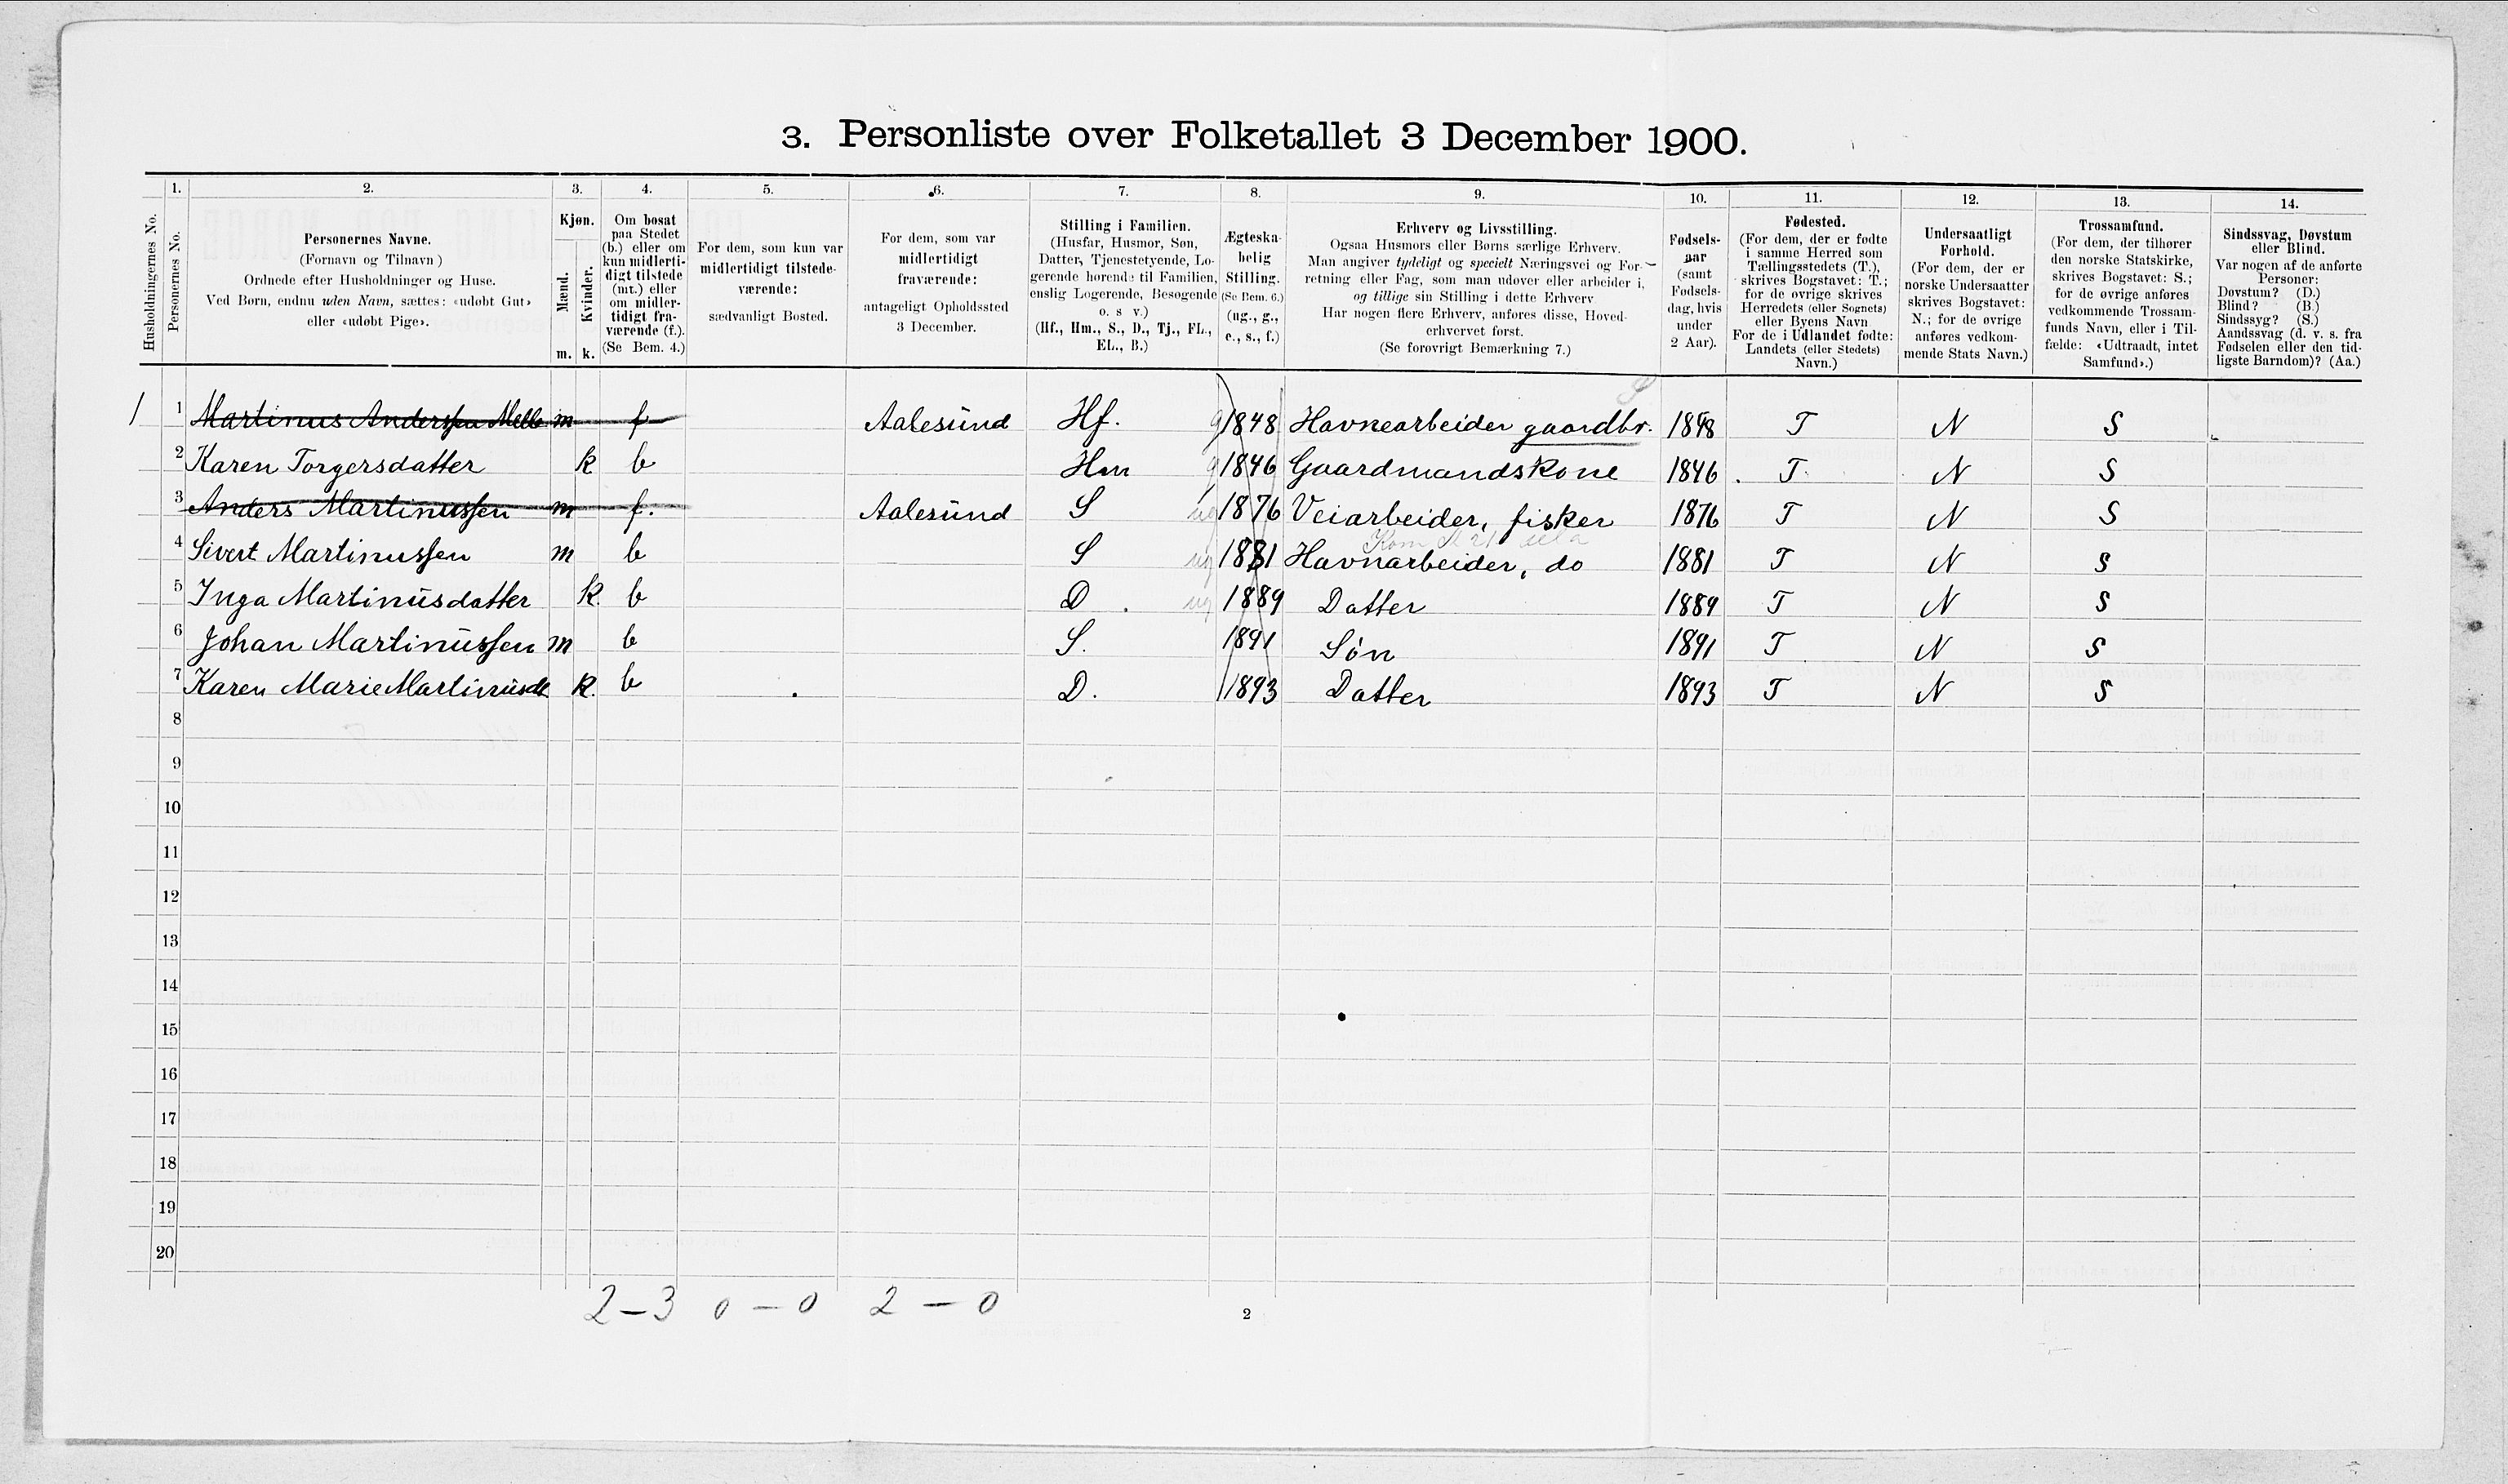 3. Personliste over Folketallet 3 December 1900.
Husholdningernes No.
1.
Personernes No.
2.
Personernes Navne.
(Fornavn og Tilnavn)
Ordnede efter Husholdninger og Huse.
Ved Børn, endnu uden Navn, sættes: «udøbt Gut»
eller «udøbt Pige».
3.
Kjøn.
Mænd.
Kvinder.
m. k.
4.
Om bosat
paa Stedet
(b.) eller om
kun midlerti-
digt tilstede
(mt.) eller
om midler-
tidigt fra-
værende (f.).
(Se Bem. 4.)
5.
For dem, som kun var
midlertidigt tilstede-
værende:
sædvanligt Bosted.
6.
For dem, som var
midlertidigt
fraværende:
antageligt Opholdssted
3 December.
7.
Stilling i Familien.
(Husfar, Husmor, Søn,
Datter, Tjenestetyende, Lo-
gerende hørende til Familien,
enslig Logerende, Besøgende
o. s v.)
(Hf., Hm., S., D., Tj., FL.,
EL., B.)
8.
Ægteska-
belig
Stilling.
(Se Bem. 6.)
(ug., g.,
e., s., f.)
9.
Erhverv og Livsstilling.
Ogsaa Husmors eller Børns særlige Erhverv.
Man angiver tydeligt og specielt Næringsvei og For-
retning eller Fag, som man udøver eller arbeider i,
og tillige sin Stilling i dette Erhverv
Har nogen flere Erhverv, anføres disse, Hoved-
erhvervet først.
(Se forøvrigt Bemærkning 7.)
10.
Fødsels-
aar
(samt
Fødsels-
dag, hvis
under
2 Aar).
11.
Fødested.
(For dem, der er fødte
i samme Herred som
Tællingsstedets (T.),
skrives Bogstavet: T.;
for de øvrige skrives
Herredets (eller Sognets)
eller Byens Navn
For de i Udlandet fødte:
Landets (eller Stedets)
Navn.)
12.
Undersaatligt
Forhold.
(For dem, der er
norske Undersaatter
skrives Bogstavet:
N.; for de øvrige
anføres vedkom-
mende Stats Navn.)
13.
Trossamfund.
(For dem, der tilhører
den norske Statskirke,
skrives Bogstavet: S.;
for de øvrige anføres
vedkommende Trossam-
funds Navn, eller i Til-
fælde: «Udtraadt, intet
Samfund».)
14.
Sindssvag, Døvstum
eller Blind.
Var nogen af de anførte
Personer:
Døvstum? (D.)
Blind? (B.)
Sindssyg? (S.)
Aandssvag (d. v. s. fra
Fødselen eller den tid-
ligste Barndom)? (Aa.)
1 1 Martinus Anderssen Melle m f Aalesund Hf. g 1848 Havnearbeider gaardbr. 1848 T N S
2 Karen Torgersdatter k b Hm g 1846 Gaardmandskone 1846 T N S
3 Anders Martinussen m f. Aalesund S ug 1876 Veiarbeider, fisker 1876 T N S
4 Sivert Martinussen m b S ug 1881 Havnarbeider, do 1881 T N S
5 Inga Martinusdatter k. b D ug 1889 Datter 1889 T N S
6 Johan Martinussen m b S. 1891 Søn 1891 T N S
7 Karen Marie Martinusdt k. b D. 1893 Datter 1893 T N S
8
9
10
11
12
13
14
15
16
17
18
19
20
2-3 0-0 2-0
2